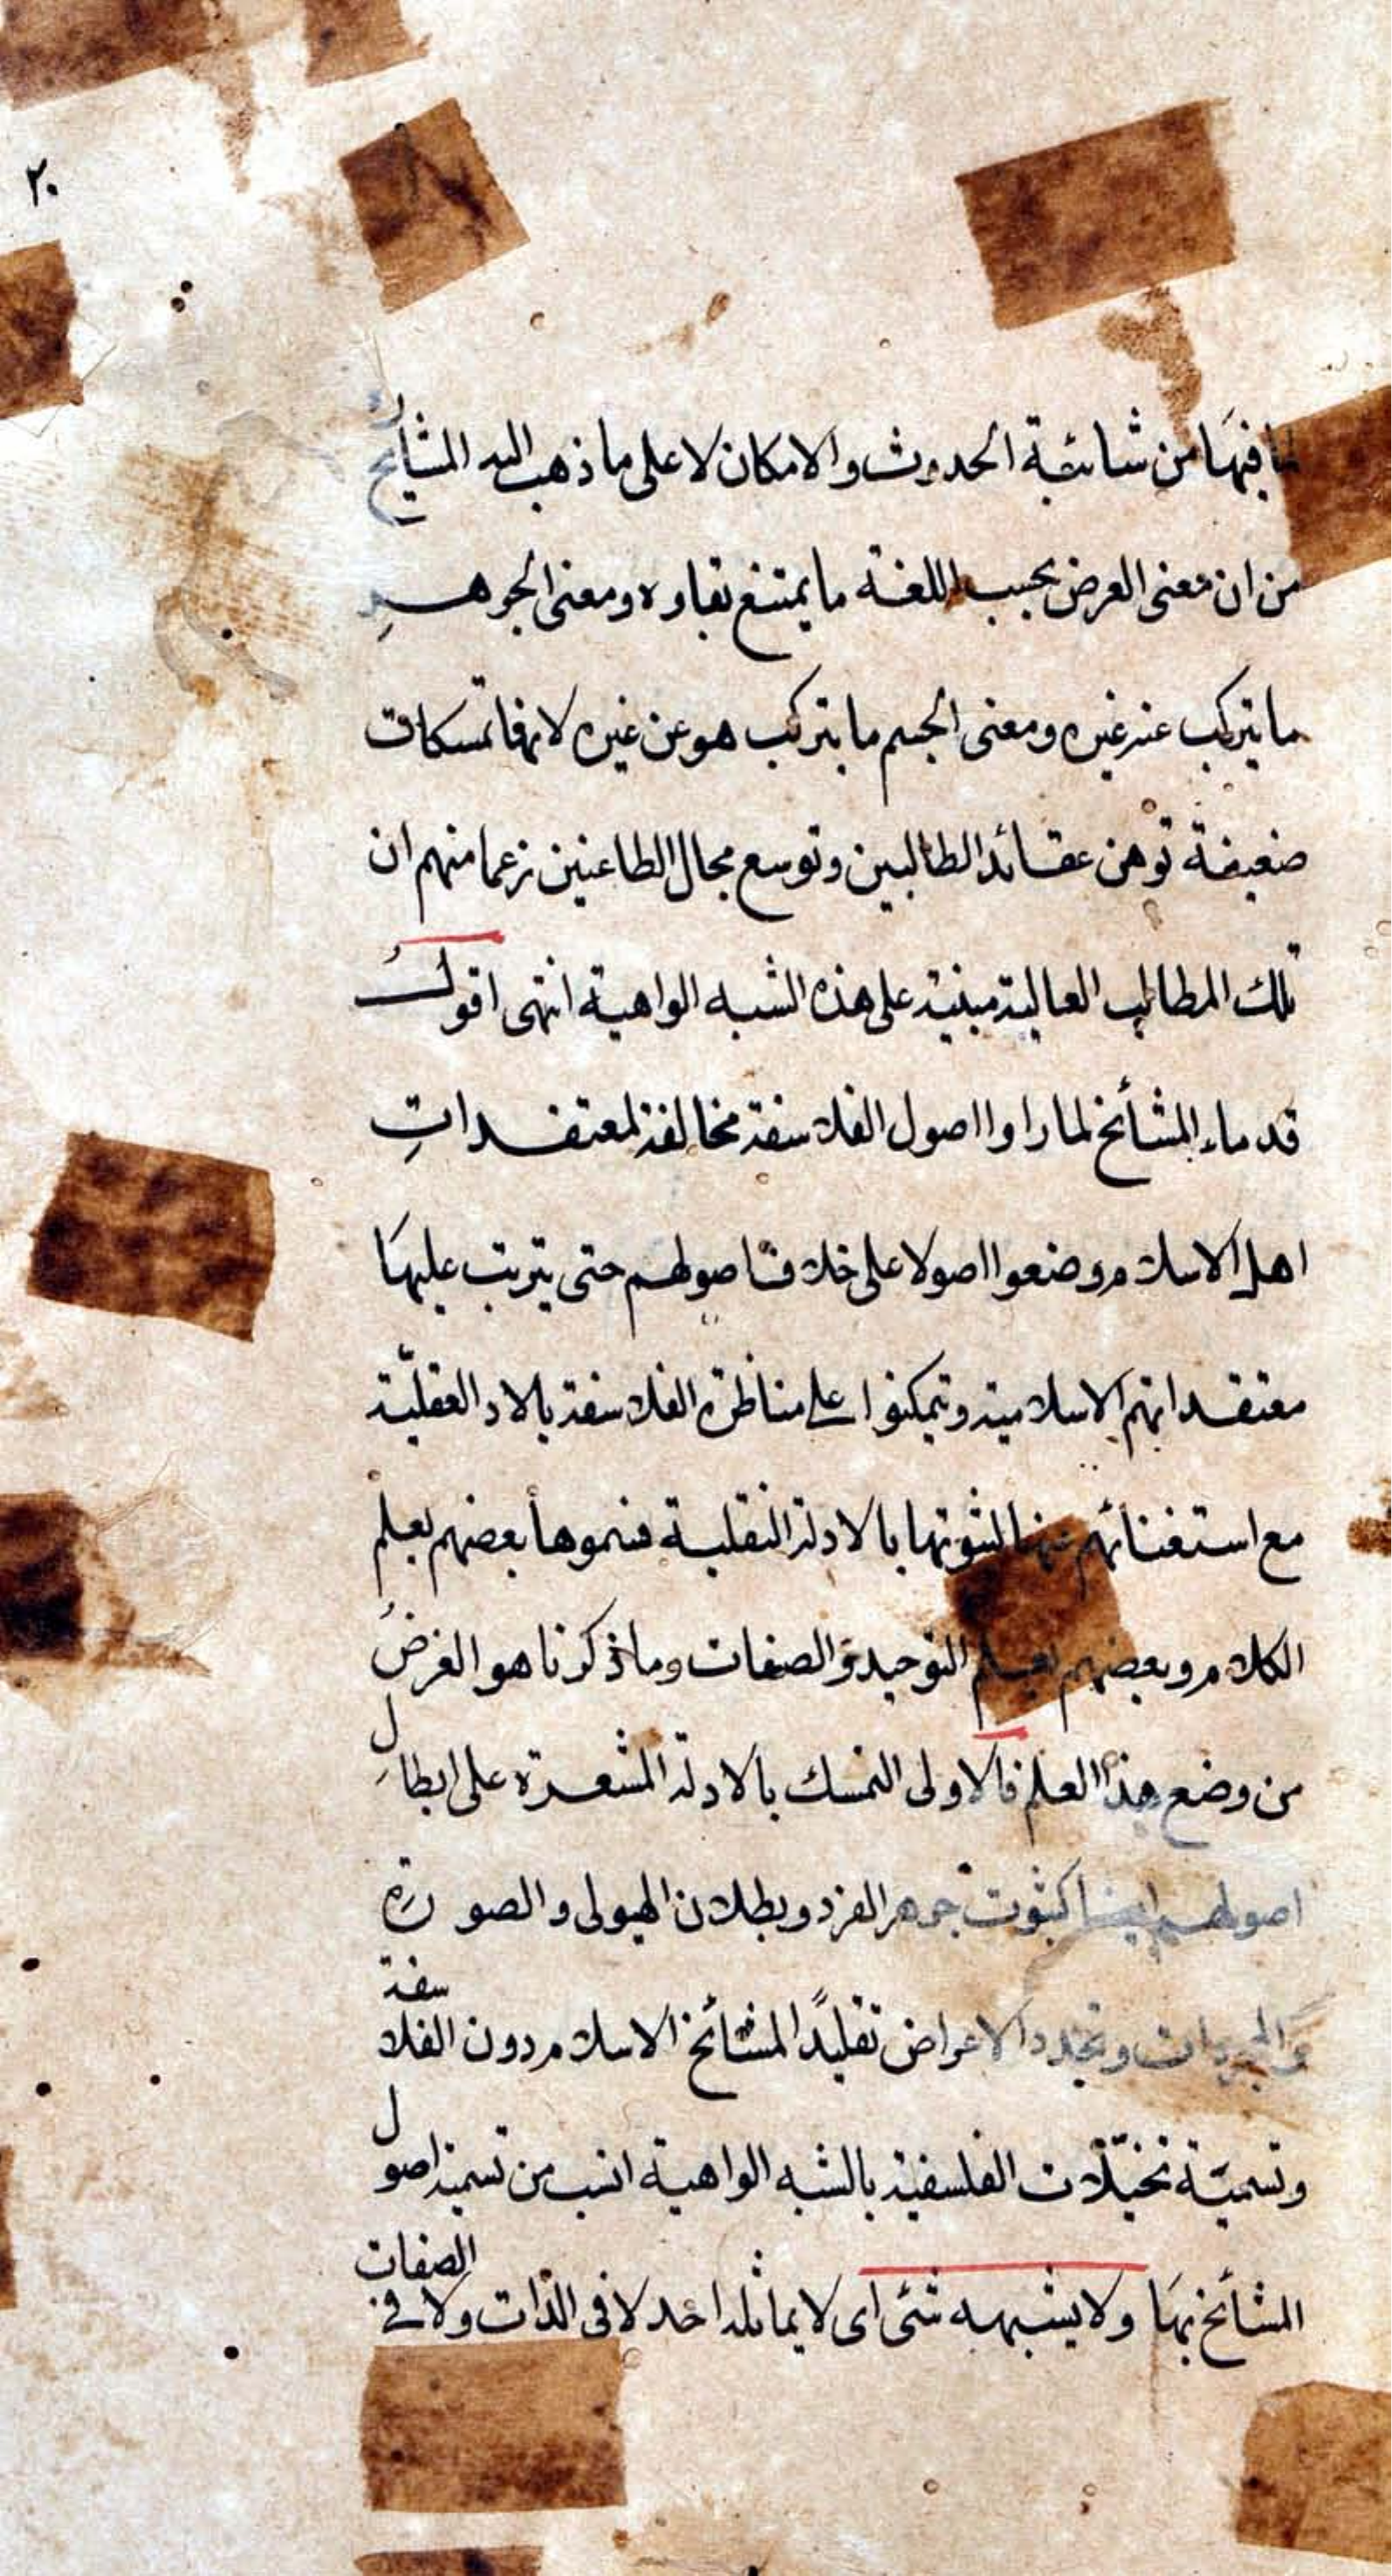 ٢٠
لما فيها من شائبة الحدوث والامكان لا على ما ذهب اليه المشايخ
من ان معنى العرض بحسب اللغة ما يمتنع بقاوه ومعنى الجوهر
ما يتركب عنه غيره ومعنى الجسم ما يتركب هو عن غيره لانها تمسكات
ضعيفة توهن عقائد الطالبين وتوسع مجال الطاعنين زعما منهم ان
تلك المطالب العالية مبنية على هذه الشبه الواهية انتهى اقول
قدماء المشائخ لما راوا اصول الفلاسفة مخالفة لمعتقدات
اهل الاسلام وضعوا اصولا على خلاف اصولهم حتى يترتب عليها
معتقداتهم الاسلامية وتمكنوا على مناظرة الفلاسفة بالاد العقليّة
مع استغنائهم عنها لثبوتها بالادلة النقلية فسموها بعضهم بعلم
الكلام وبعضهم بعلم التوحيد والصفات وما ذكرنا هو الغرض
من وضع هذا العلم فالاولى التمسك بالادلة المشعرة على ابطال
اصولهم ايضا كثبوت جوهر الفرد وبطلان الهيولى والصورة
والمجردات وتجدد الاعراض تقليدًا لمشائخ الاسلام دون الفلاسفة
وتسميّة تخيّلات الفلسفية بالشبه الواهية انسب من تسمية اصول
المشائخ بها ولا يشبهه شئ اى لا يماثله احد لا فى الذات ولا فى الصفات